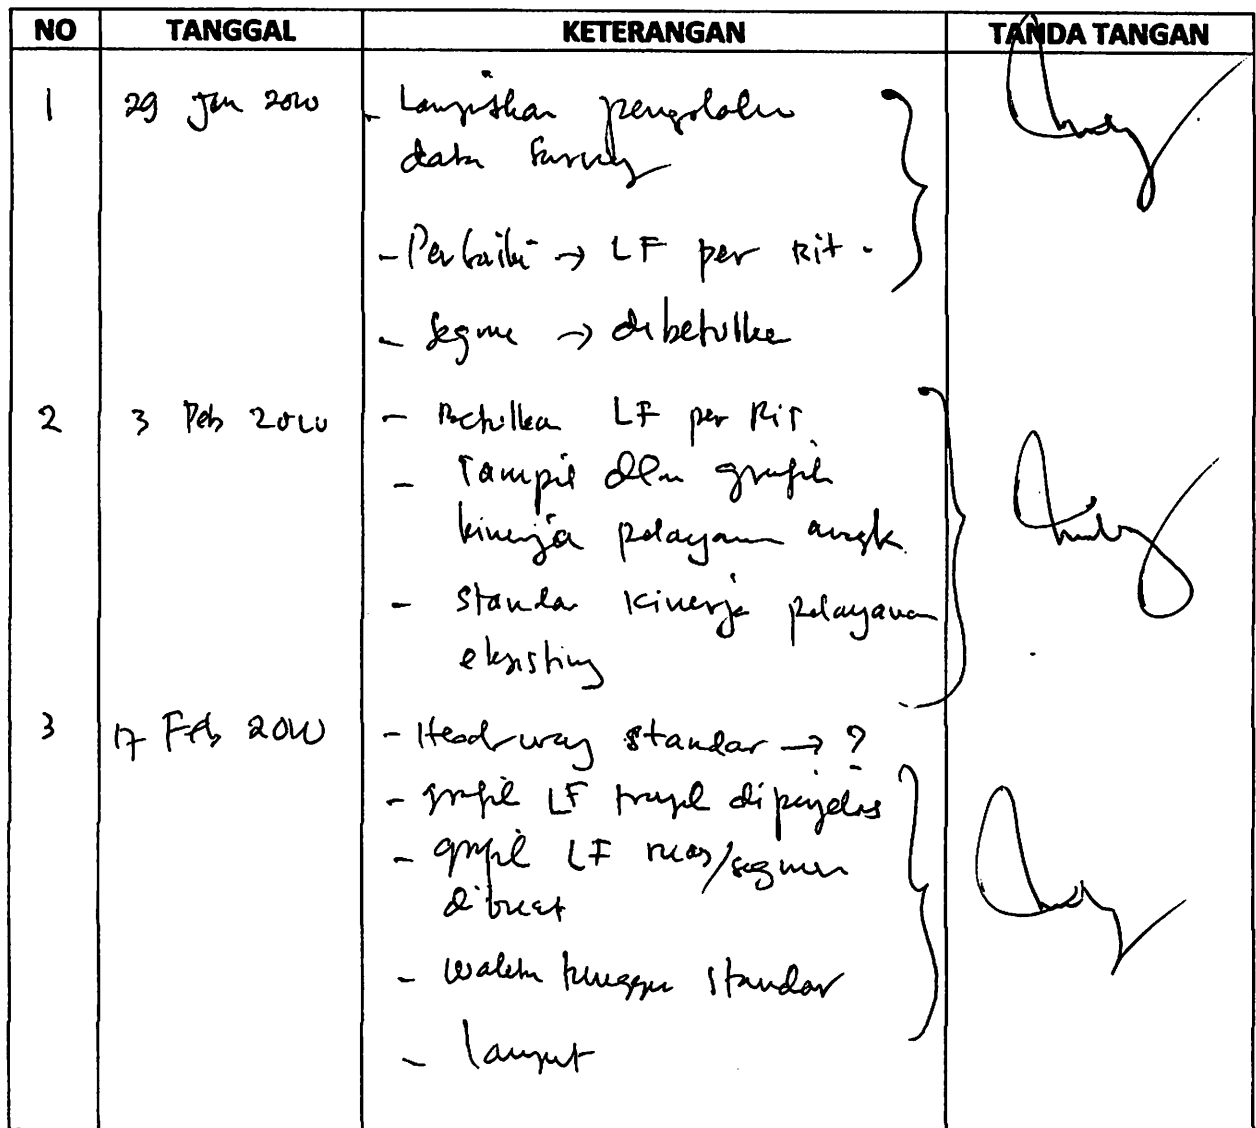 NO TANGGAL KETERANGAN TANDA TANGAN
1 29 Jan 2010 - Lampirkan pengolahan
data survey
- Perbaiki → LF per Rit.
- Segmen → dibetulkan
2 3 Feb 2010 - Betulkan LF per Rit
- Tampil dlm grafik
kinerja pelayanan angk.
- Standar kinerja pelayanan
eksisting
3 17 Feb 2010 - Headway standar → ?
- grafik LF dipenjelas
- grafik LF ruas/segmen
dibuat
- waktu tunggu standar
- lanjut